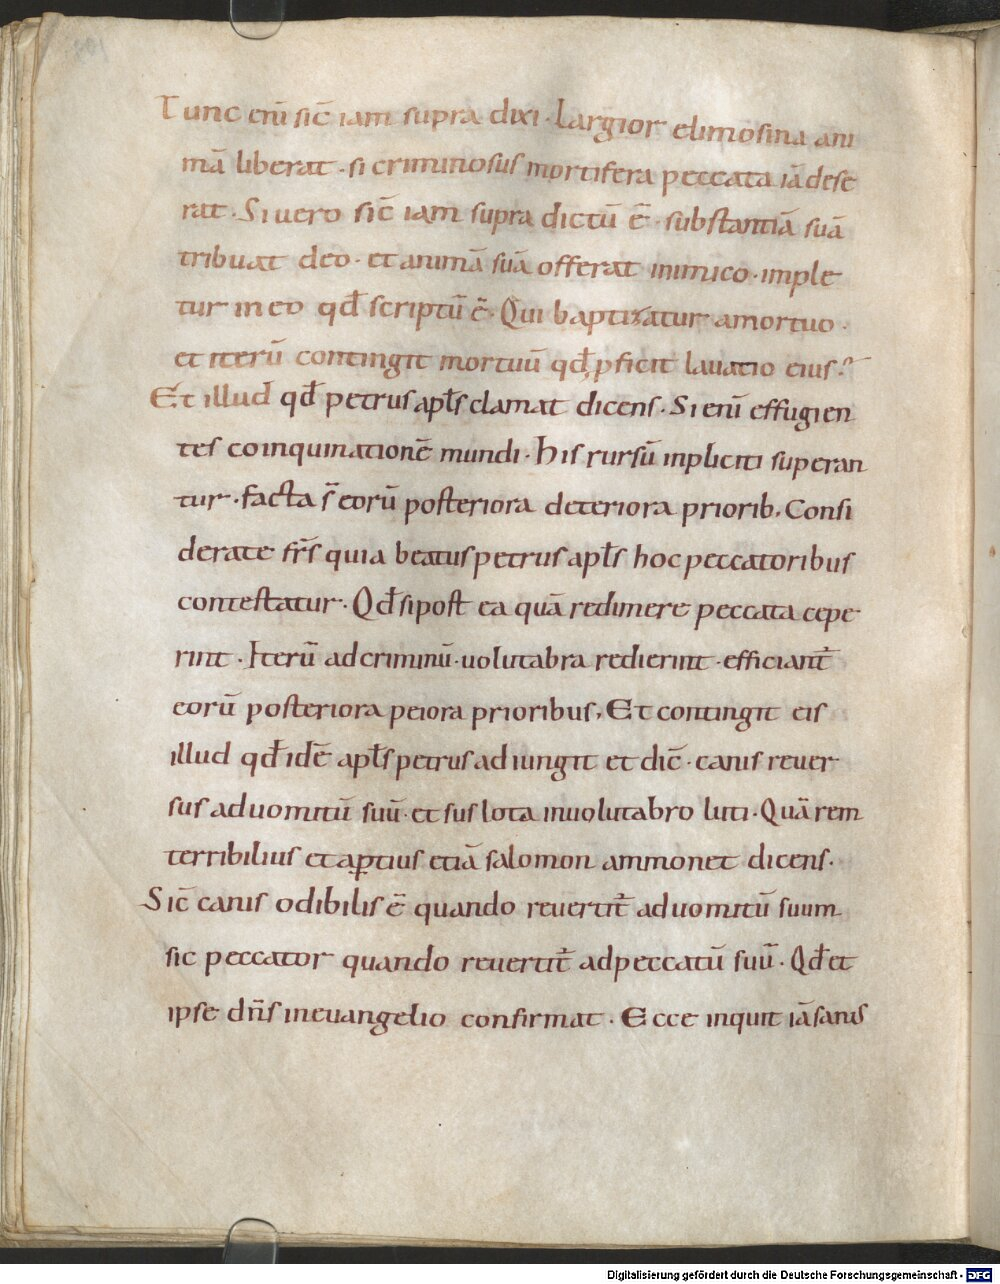 Tunc enī sic̄ iam supra dixi · Largior elimosina ani
mā liberat · si criminosus mortifera peccata iā dese
rat · Si uero sic̄ iam supra dictū ē · substantiā suā
tribuat deo · et animā suā offerat inimico · imple
tur in eo qđ scriptū ē · Qui baptizatur a mortuo ·
et iterū contingit mortuū qđ ꝓficit lauatio eius ·
Et illud qđ petrus apłs clamat dicens · Si enī effugien
tes coinquinationē mundi · his rursū inpliciti superan
tur · facta s̄ eorū posteriora deteriora priorib; Consi
derate fr̄s quia beatus petrus apłs hoc peccatoribus
contestatur · Qđ si post ea quā redimere peccata cepe
rint · Iterū ad criminū · uolutabra redierint · efficiant᷑
eorū posteriora peiora prioribus, Et contingit eis
illud qđ idē apłs petrus adiungit et dic̄ · canis reuer
sus ad uomitū suū · et sus lota in uolutabro luti · Quā rem
terribilius et aꝑtius etiā salomon ammonet dicens ·
Sic̄ canis odibilis ē quando reuertit᷑ ad uomitū suum
sic peccator quando reuertit᷑ ad peccatū suū · Qđ et
ipse dn̄s in euangelio confirmat · Ecce inquit iā sanus
Digitalisierung gefördert durch die Deutsche Forschungsgemeinschaft - DFG